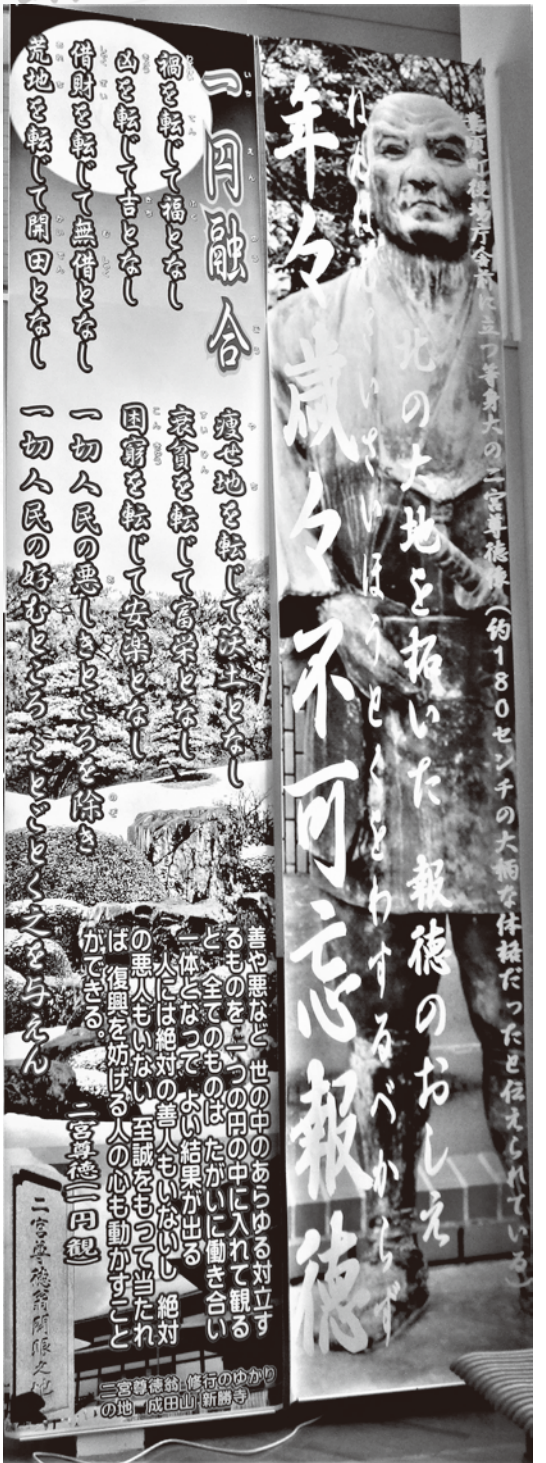 豊頃町役場庁舎前に立つ等身大の二宮尊徳像(約180センチの大柄な体格だったと伝えられている)
北の大地を拓いた 報徳のおしえ
ねんねんさいさいほうとくをわするべからず
年々歳々不可忘報徳
一円融合
禍を転じて福となし
凶を転じて吉となし
借財を転じて無借となし
荒地を転じて開田となし
瘦せ地を転じて沃土となし
衰貧を転じて富栄となし
困窮を転じて安楽となし
一切人民の悪しきところを除き
一切人民の好むところ ことごとく之を与えん
善や悪など 世の中のあらゆる対立す
るものを 一つの円の中に入れて観る
と 全てのものは たがいに働き合い
一体となって よい結果が出る
人には絶対の善人もいないし 絶対
の悪人もいない 至誠をもって当たれ
ば 復興を妨げる人の心も動かすこと
ができる。
二宮尊徳(一円観)
二宮尊徳翁開眼之地
二宮尊徳翁 修行のゆかり
の地 成田山 新勝寺